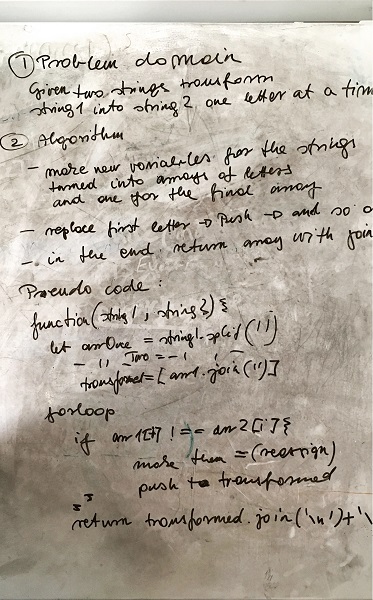 ① Problem domain
Given two strings transform
string1 into string2 one letter at a tim
② Algorithm
- make new variables for the strings
turned into arrays of letters
and one for the final array
- replace first letter → Push → and so o
- in the end return array with join
Pseudo code:
function(string1, string2) {
let arrOne = string1.split('')
- " - Two = - " -
transformed = [arr1.join('')]
forloop
if arr1[i] !== arr2[i] {
make them = (reassign)
push to transformed
} }
return transformed.join('\n') + '\